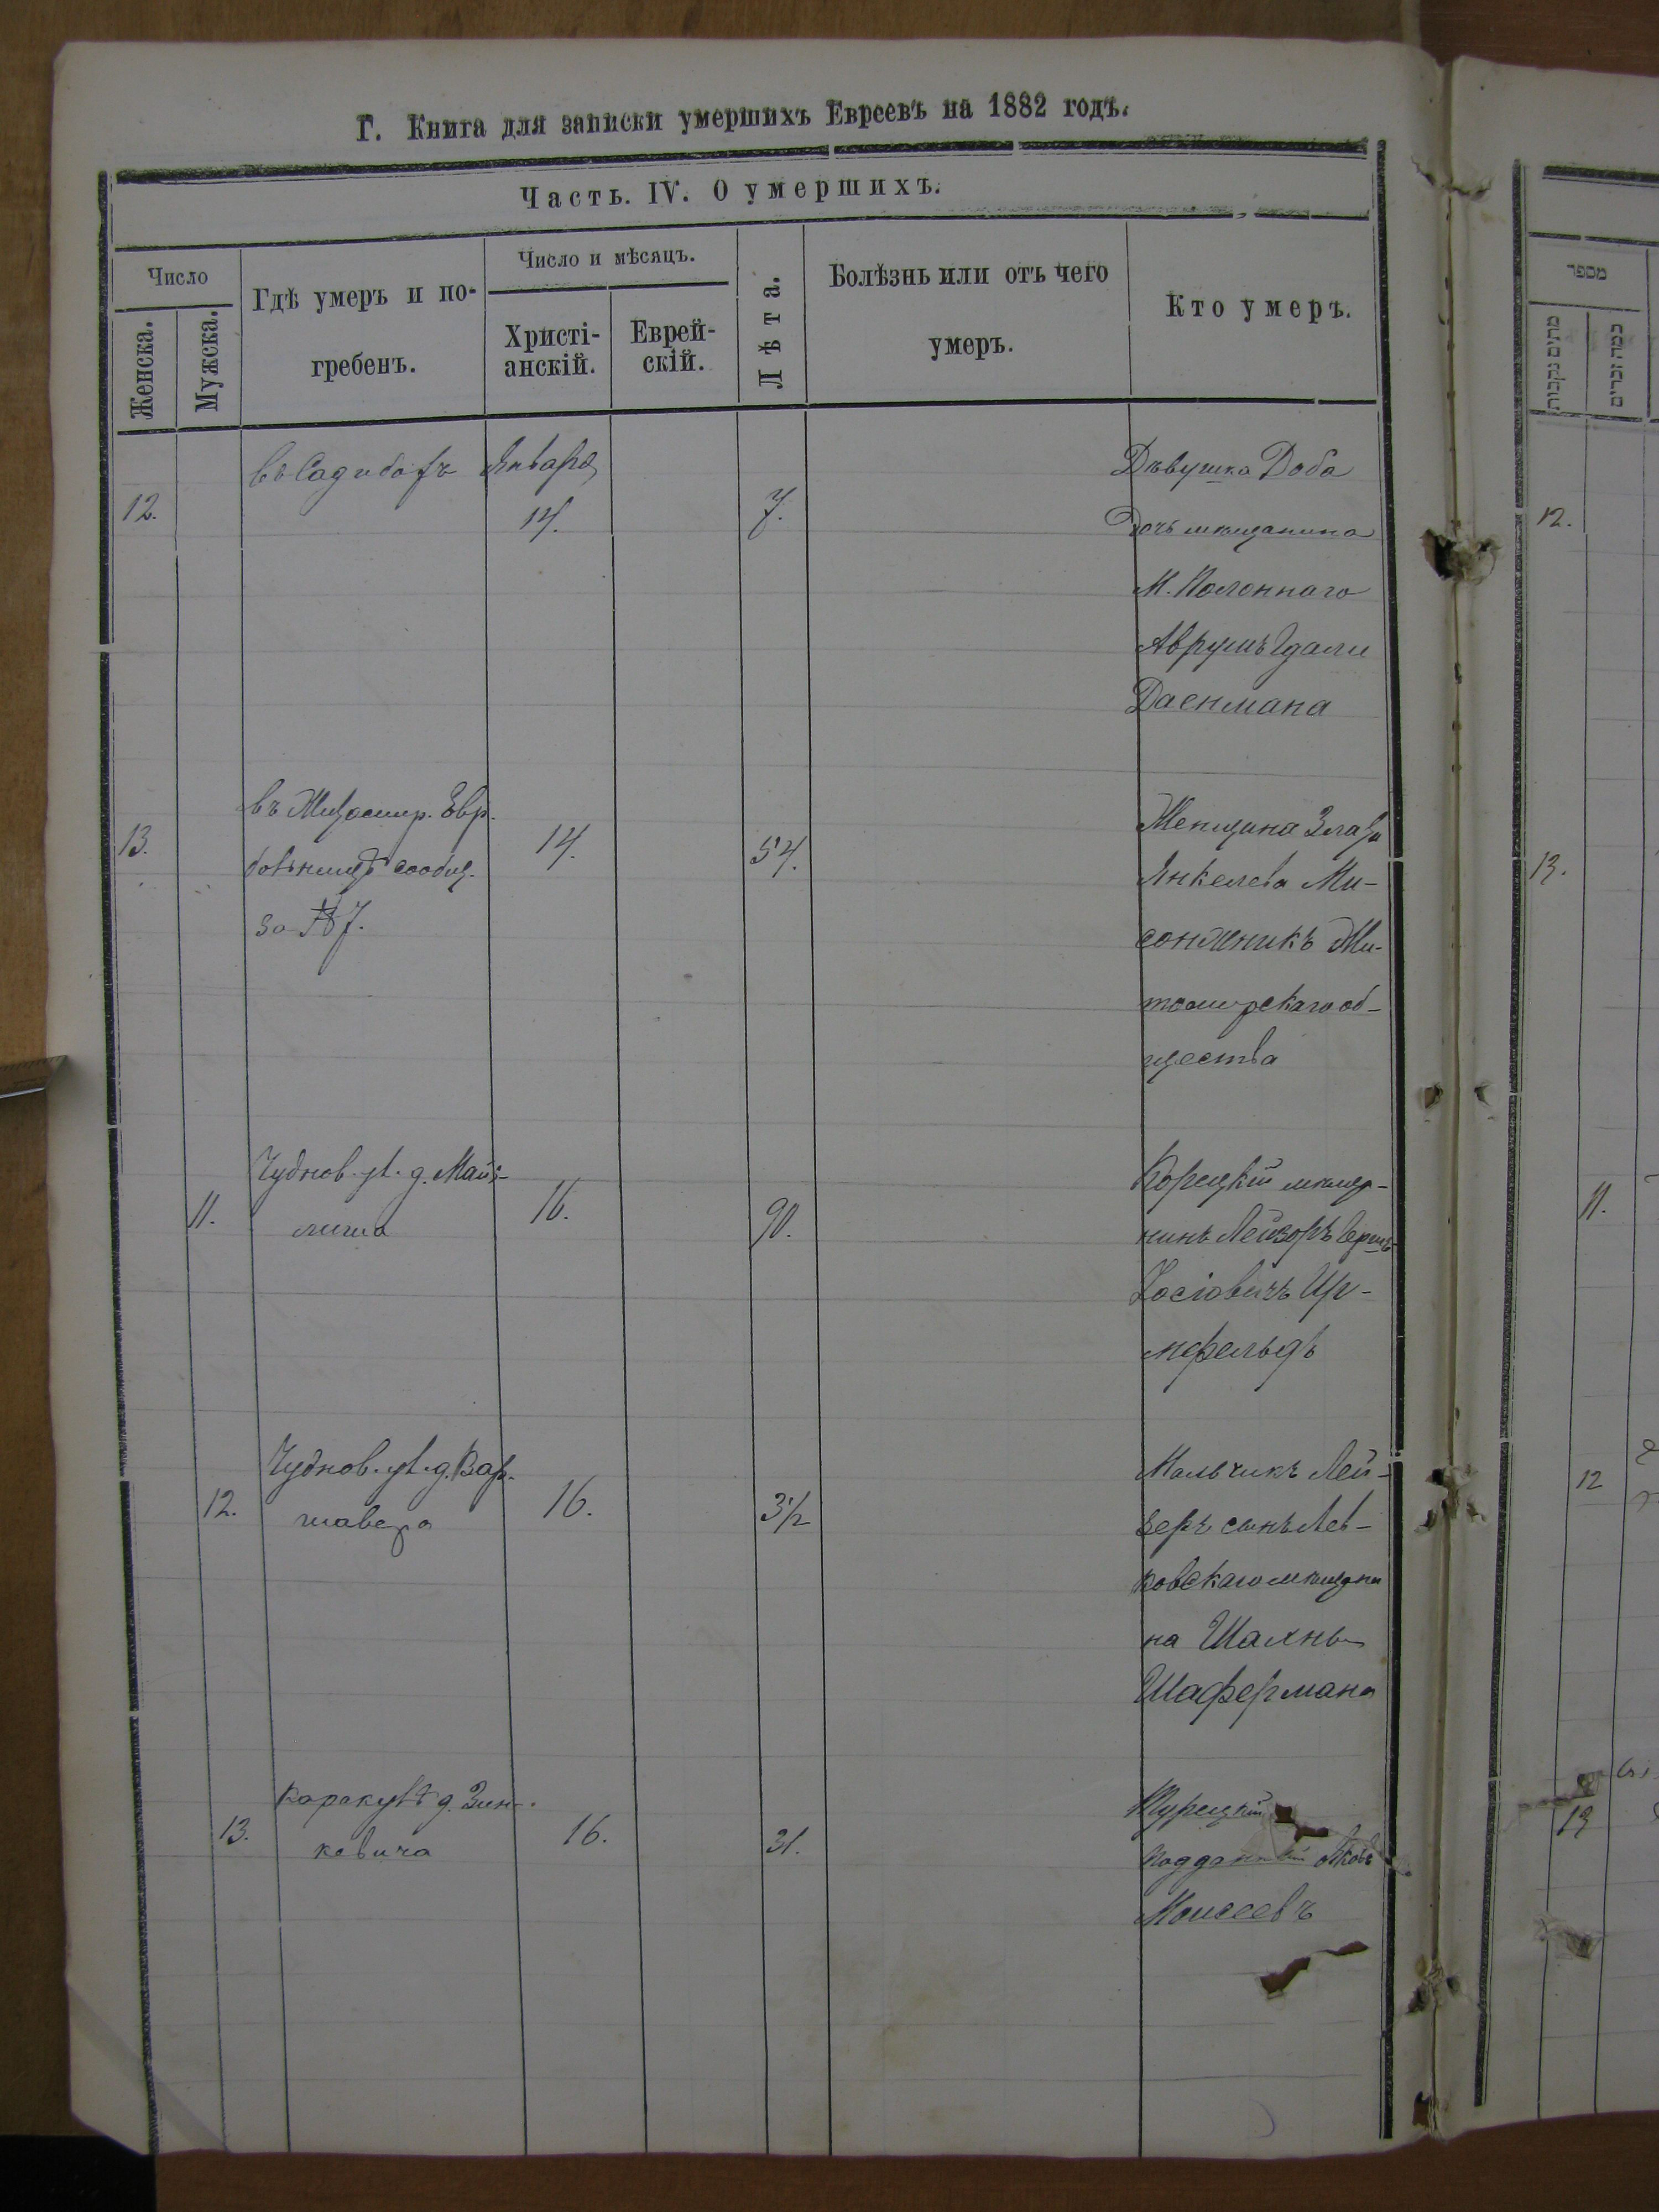 Г. Книга для записки умершихъ Евреевъ на 1882 годъ.
Часть. IV. О умершихъ.
Число
Женска.
Мужска.
Гдѣ умеръ и по-
гребенъ.
Число и мѣсяцъ.
Христі-
анскій.
Еврей-
скій.
Лѣта.
Болѣзнь или отъ чего
умеръ.
Кто умеръ.
12.
Января
14.
7.
Дѣвушка Доба
Дочь мѣщанина
М. Полоннаго
Аврумъ Гдали
Даенмана
13.
въ Житомир. Евр.
больницѣ сообщ.
за № 7.
14.
54.
Женщина Злата
Янкелева Ми-
Жи-
томирскаго об-
щества
11.
Чуднов. ул. д. Май-
16.
90.
Корецкій мѣща-
нинъ Лейзоръ Герш
Іосіовичъ Ир-
мфельдъ
12.
Чуднов. ул. д. Вар-
шавера
16.
3½
Мальчикъ Лей-
зеръ сынъ Лев-
ковскаго мѣщани
на Шахны
Шафермана
13.
Каракулѣ д. Зин-
кевича
16.
31.
Турецкій
подданный
Моисеевъ
מספר
מתים נקבות
כמה זכרים
12.
13.
11.
12
13